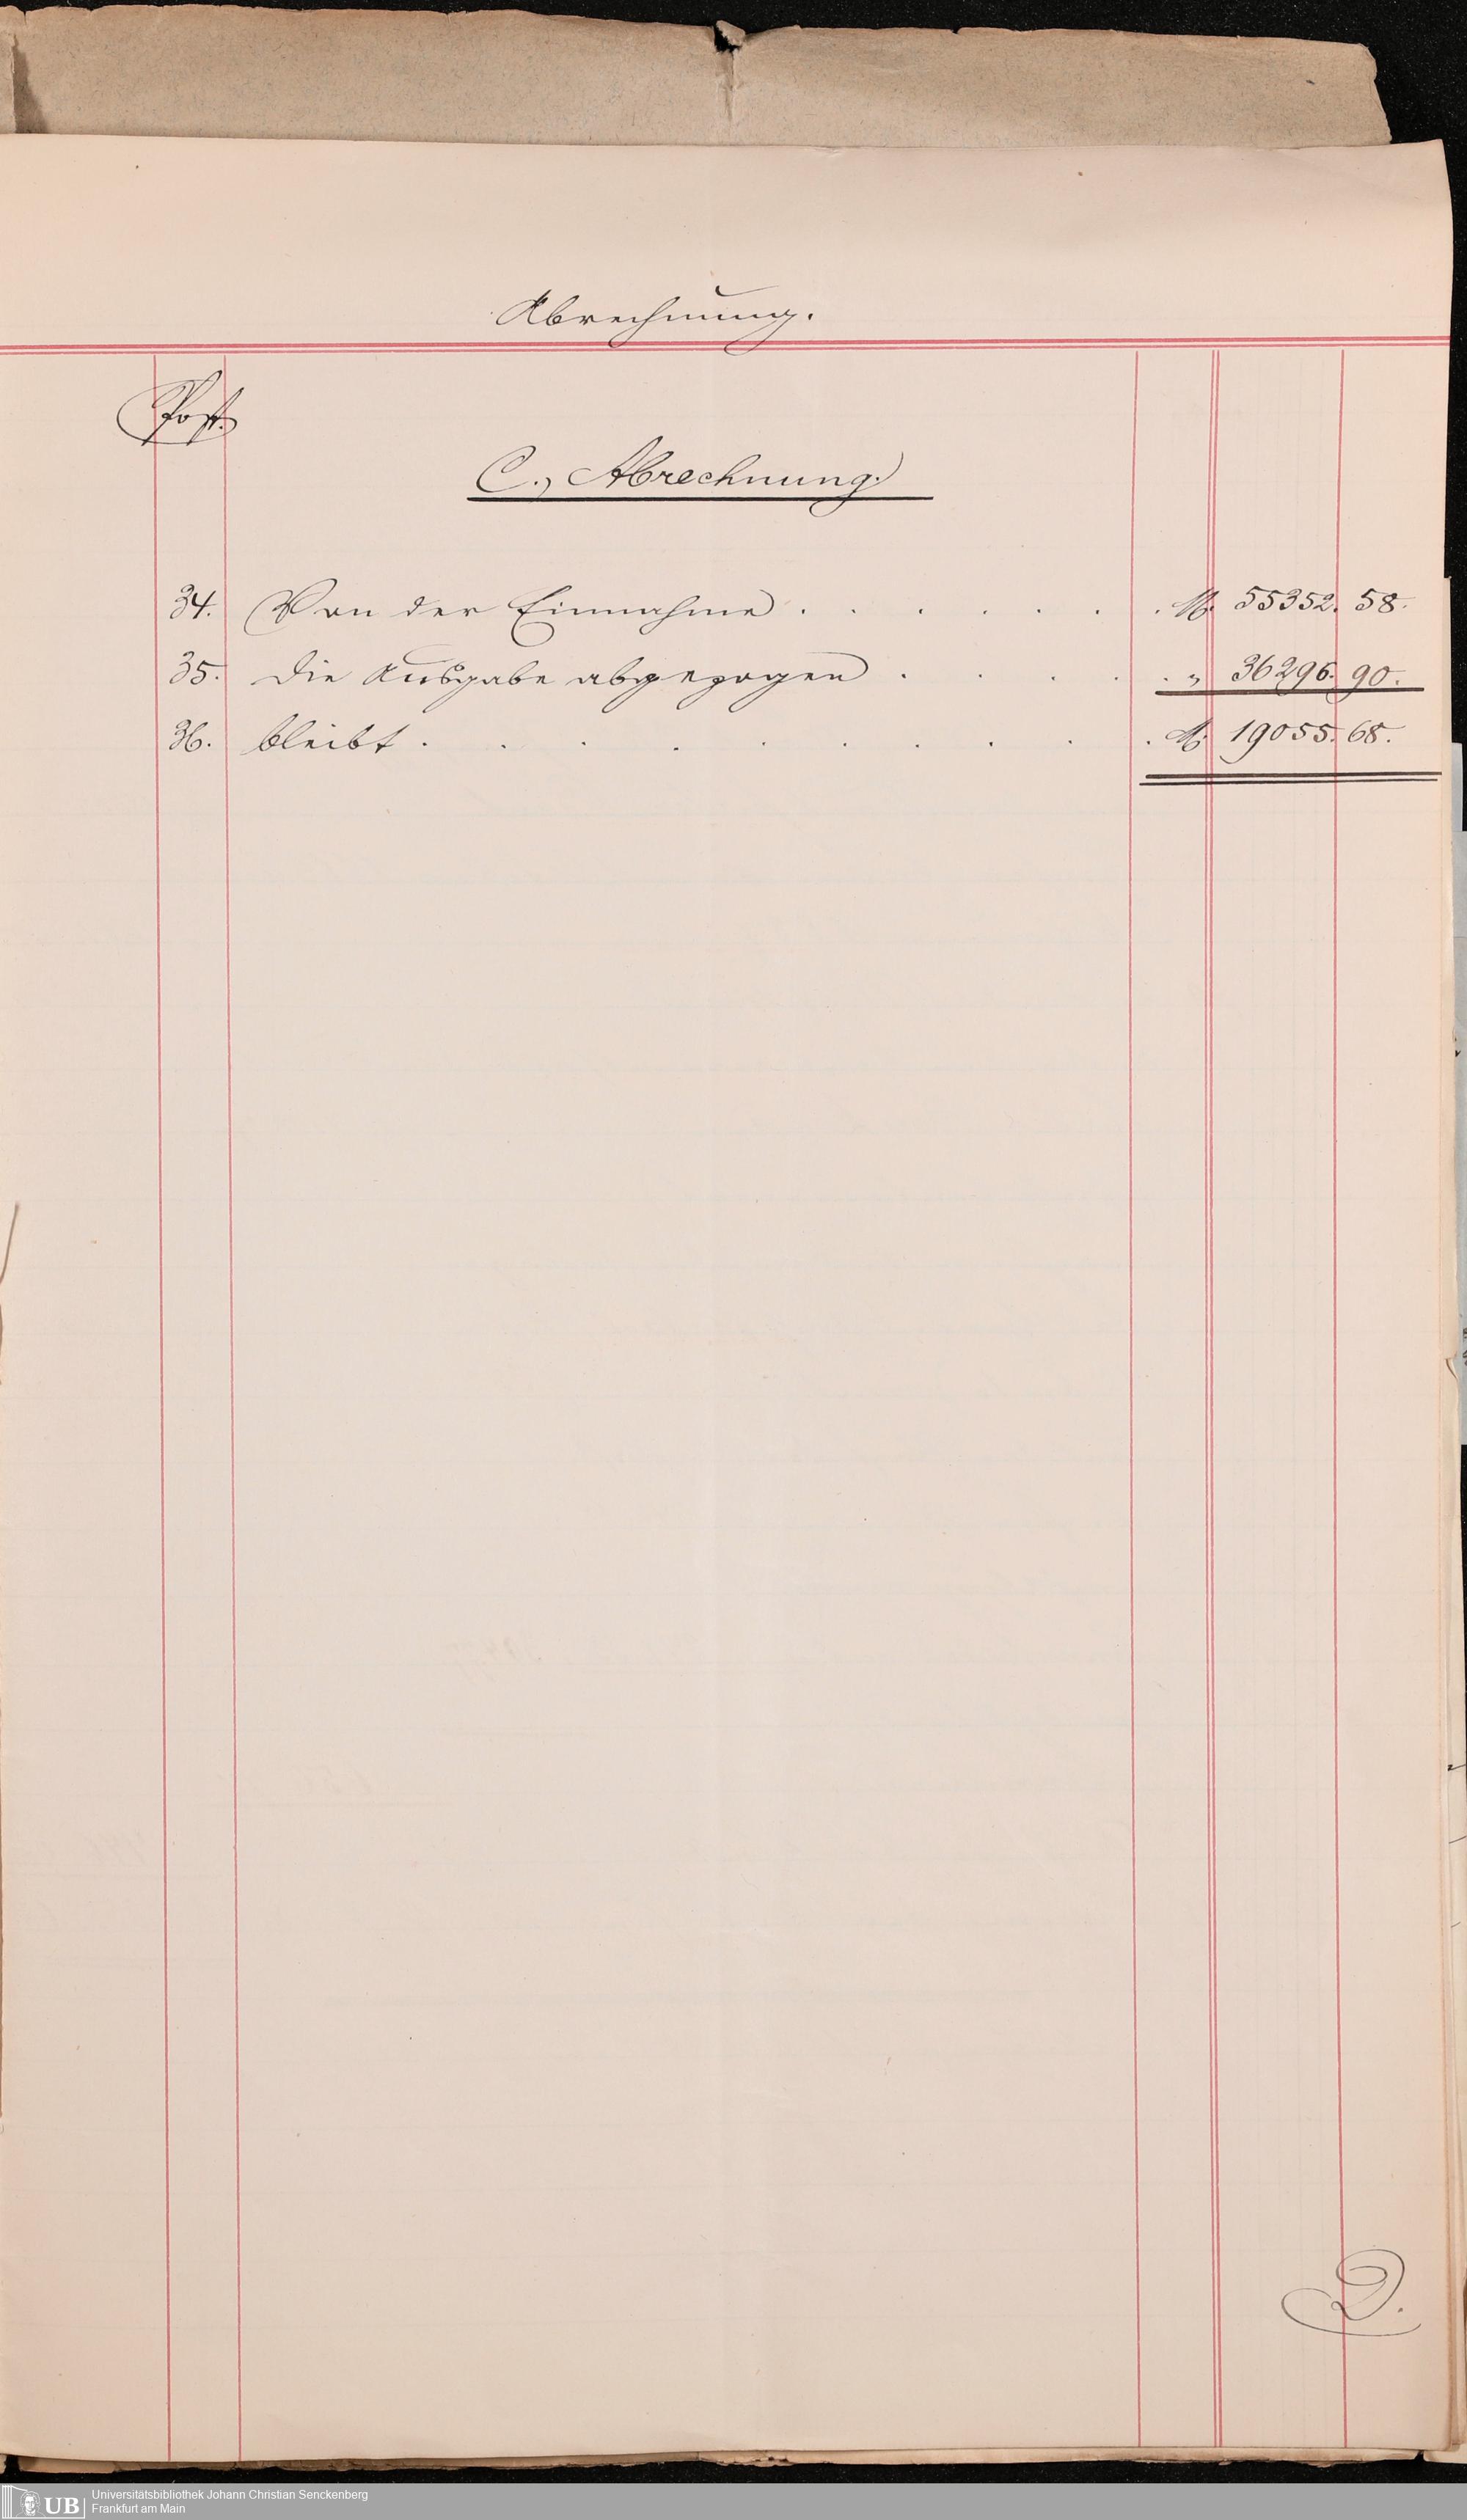 Abrechnung.
Post.
C., Abrechnung.
34. Von der Einnahme . . . . . . . M. 55352. 58.
35. die Ausgabe abgezogen . . . . . „ 36296. 90.
36. bleibt . . . . . . . . . . M. 19055. 68.
D.
UB Universitätsbibliothek Johann Christian Senckenberg
Frankfurt am Main